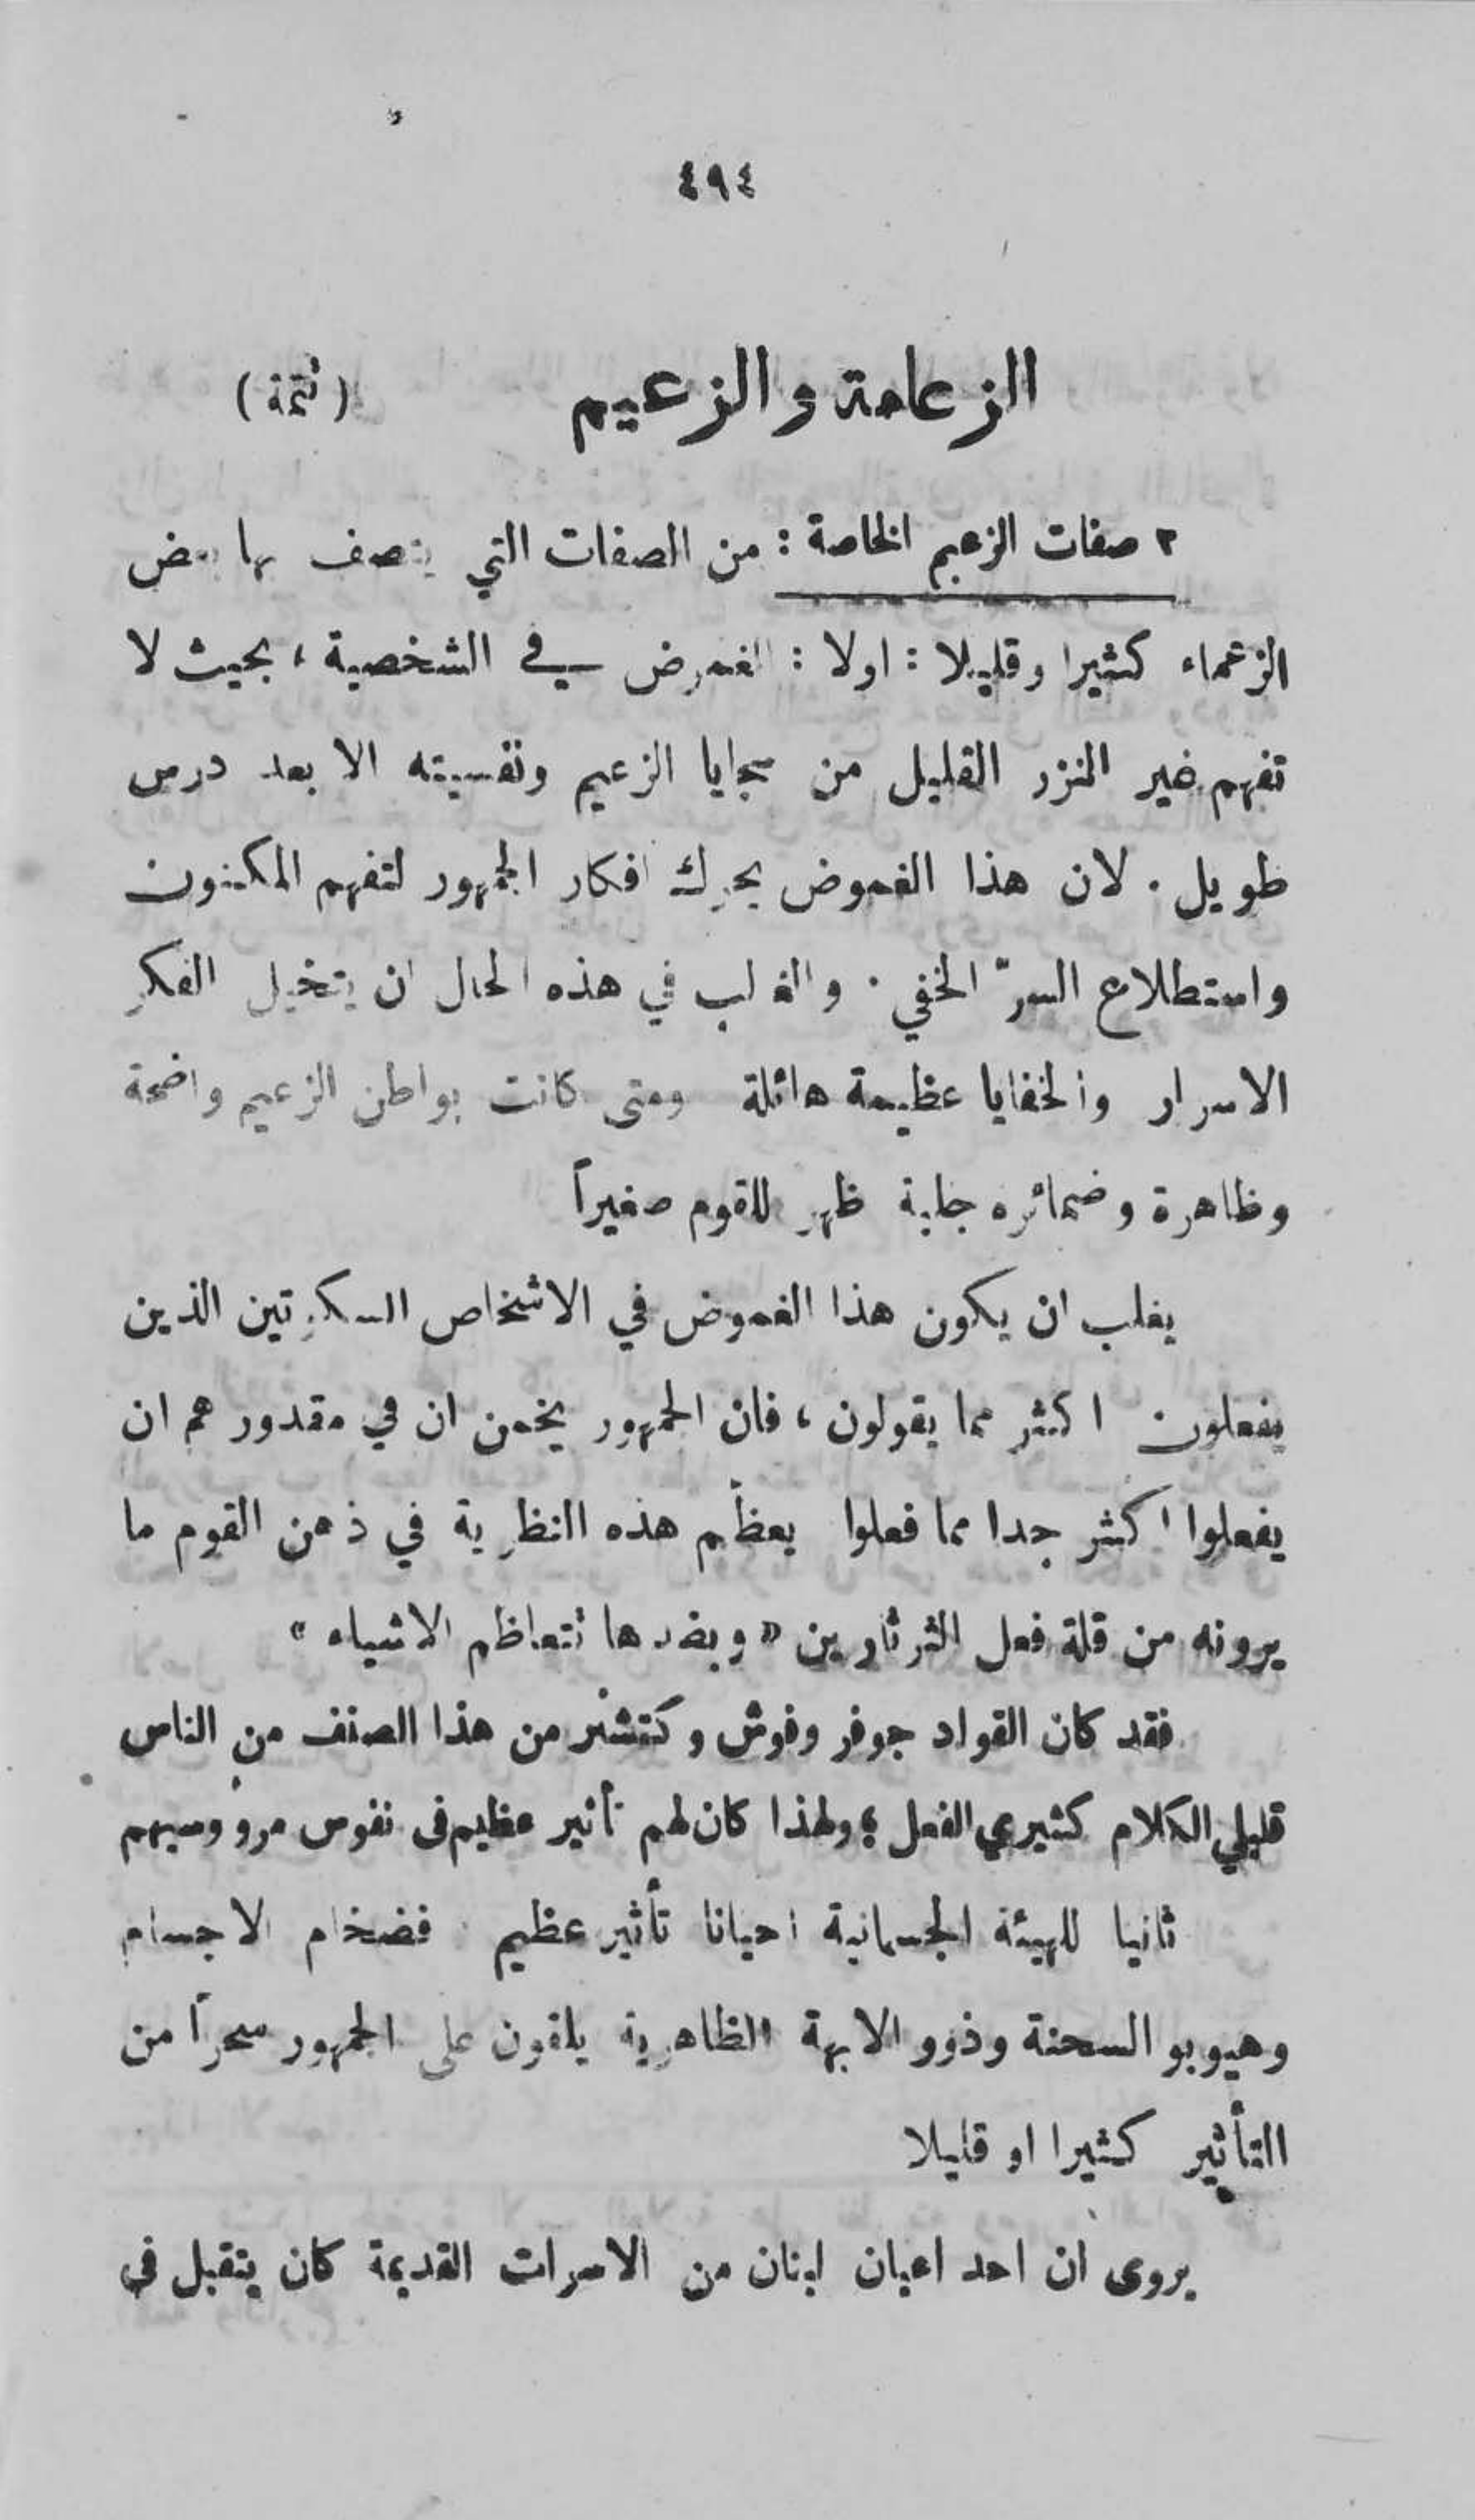 ٤٩٤
الزعامة والزعيم (تتمة)
٢ صفات الزعيم الخاصة : من الصفات التي يتصف بها بعض
الزعماء كثيرا وقليلا : اولا : الغموض في الشخصية ، بحيث لا
تفهم غير النزر القليل من سجايا الزعيم ونفسيته الا بعد درس
طويل . لان هذا الغموض يحرك افكار الجمهور لتفهم المكنون
واستطلاع السرّ الخفي . والغالب في هذه الحال ان يتخيل الفكر
الاسرار والخفايا عظيمة هائلة ومتى كانت بواطن الزعيم واضحة
وظاهرة وضمائره جلية ظهر للقوم صغيراً
يغلب ان يكون هذا الغموض في الاشخاص السكوتين الذين
يفعلون اكثر مما يقولون ، فان الجمهور يخمن ان في مقدورهم ان
يفعلوا اكثر جدا مما فعلوا يعظّم هذه النظرية في ذهن القوم ما
يرونه من قلة فعل الثرثارين « وبضدها تتعاظم الاشياء »
فقد كان القواد جوفر وفوش وكتشنر من هذا الصنف من الناس
قليلي الكلام كثيري الفعل ؛ ولهذا كان لهم تأثير عظيم فى نفوس مرؤوسيهم
ثانيا للهيئة الجسمانية احيانا تأثير عظيم فضخام الاجسام
وهيوبو السحنة وذوو الابهة الظاهرية يلقون على الجمهور سحراً من
التأثير كثيرا او قليلا
يروى ان احد اعيان لبنان من الاسرات القديمة كان يتقبل في